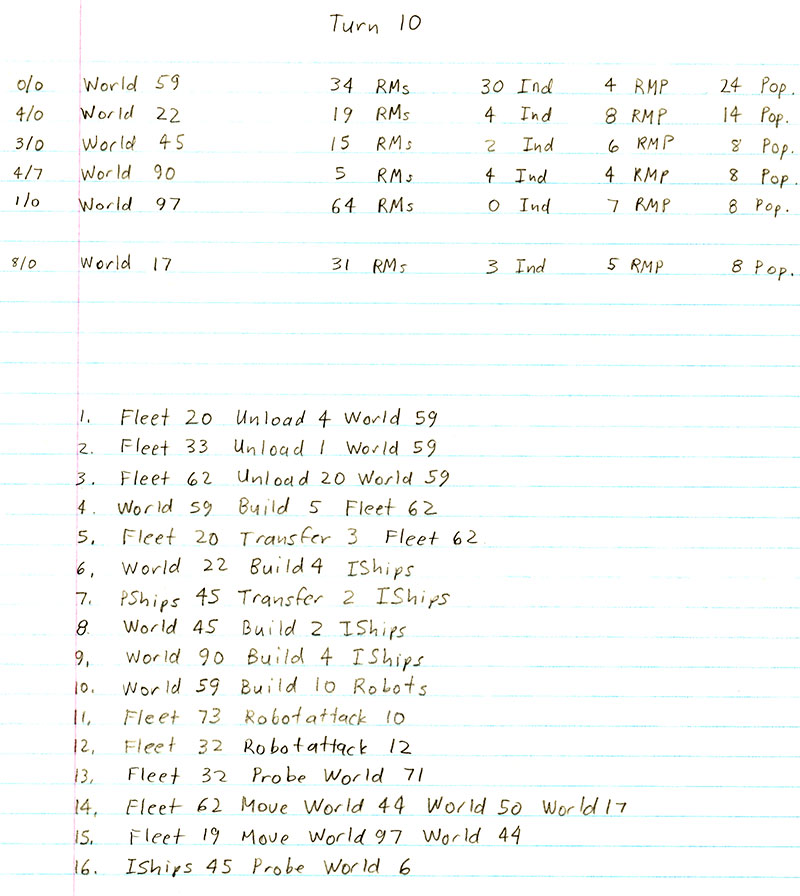 Turn 10
0/0 World 59 34 RMs 30 Ind 4 RMP 24 Pop.
4/0 World 22 19 RMs 4 Ind 8 RMP 14 Pop.
3/0 World 45 15 RMs 2 Ind 6 RMP 8 Pop.
4/7 World 90 5 RMs 4 Ind 4 RMP 8 Pop.
1/0 World 97 64 RMs 0 Ind 7 RMP 8 Pop.
8/0 World 17 31 RMs 3 Ind 5 RMP 8 Pop.
1. Fleet 20 Unload 4 World 59
2. Fleet 33 Unload 1 World 59
3. Fleet 62 Unload 20 World 59
4. World 59 Build 5 Fleet 62
5. Fleet 20 Transfer 3 Fleet 62
6, World 22 Build 4 IShips
7. PShips 45 Transfer 2 IShips
8. World 45 Build 2 IShips
9, World 90 Build 4 IShips
10. World 59 Build 10 Robots
11, Fleet 73 Robotattack 10
12, Fleet 32 Robotattack 12
13, Fleet 32 Probe World 71
14, Fleet 62 Move World 44 World 50 World 17
15. Fleet 19 Move World 97 World 44
16. IShips 45 Probe World 6